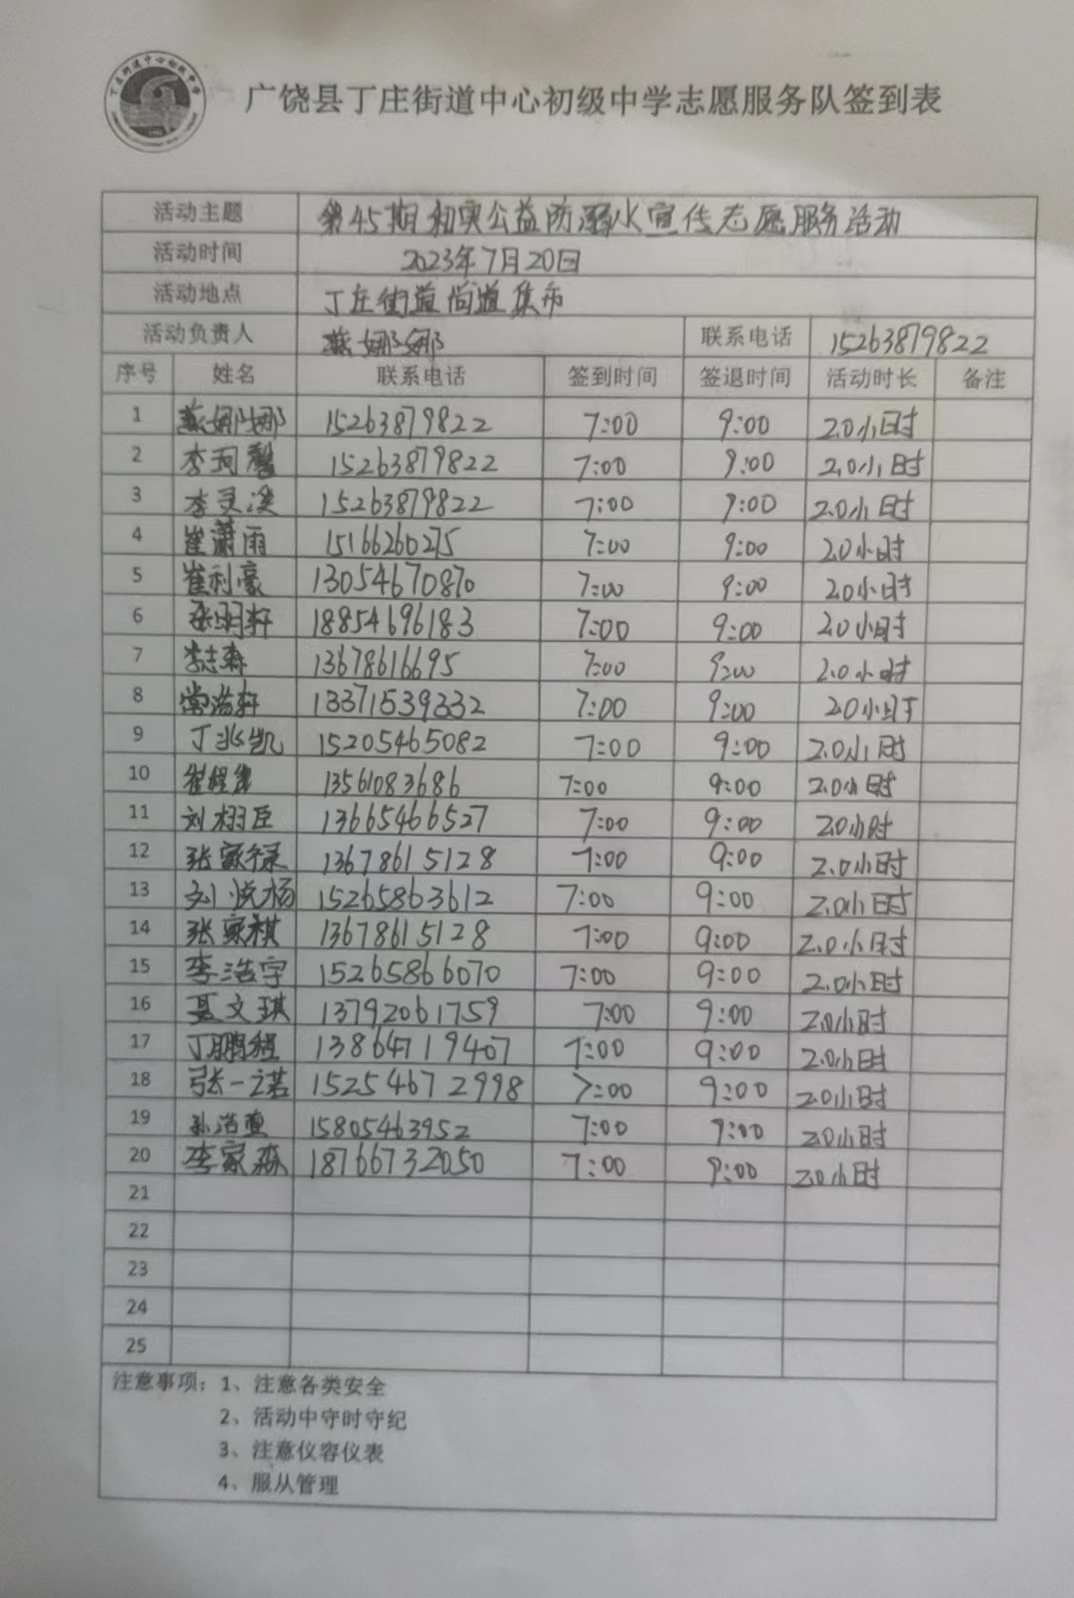 广饶县丁庄街道中心初级中学志愿服务队签到表
活动主题 第45期和实公益防溺水宣传志愿服务活动
活动时间 2023年7月20日
活动地点 丁庄街道尚道集市
活动负责人 燕娜娜 联系电话 15263879822
序号 姓名 联系电话 签到时间 签退时间 活动时长 备注
1 燕娜娜 15263879822 7:00 9:00 2.0小时
2 李珂馨 15263879822 7:00 9:00 2.0小时
3 李灵溪 15263879822 7:00 9:00 2.0小时
4 崔潇雨 15166260275 7:00 9:00 2.0小时
5 崔利豪 13054670870 7:00 9:00 2.0小时
6 张明轩 18854696183 7:00 9:00 2.0小时
7 李志森 13678616695 7:00 9:00 2.0小时
8 常浩轩 13371539332 7:00 9:00 2.0小时
9 丁兆凯 15205465082 7:00 9:00 2.0小时
10 崔 13561083686 7:00 9:00 2.0小时
11 刘栩臣 13665466527 7:00 9:00 2.0小时
12 张家禄 13678615128 7:00 9:00 2.0小时
13 刘悦杨 15265863612 7:00 9:00 2.0小时
14 张家祺 13678615128 7:00 9:00 2.0小时
15 李浩宇 15265866070 7:00 9:00 2.0小时
16 聂文琪 13792061759 7:00 9:00 2.0小时
17 丁鹏程 13864719407 7:00 9:00 2.0小时
18 张一诺 15254672998 7:00 9:00 2.0小时
19 孙浩 15805463952 7:00 9:00 2.0小时
20 李家森 18766732050 7:00 9:00 2.0小时
21
22
23
24
25
注意事项：1、注意各类安全
2、活动中守时守纪
3、注意仪容仪表
4、服从管理